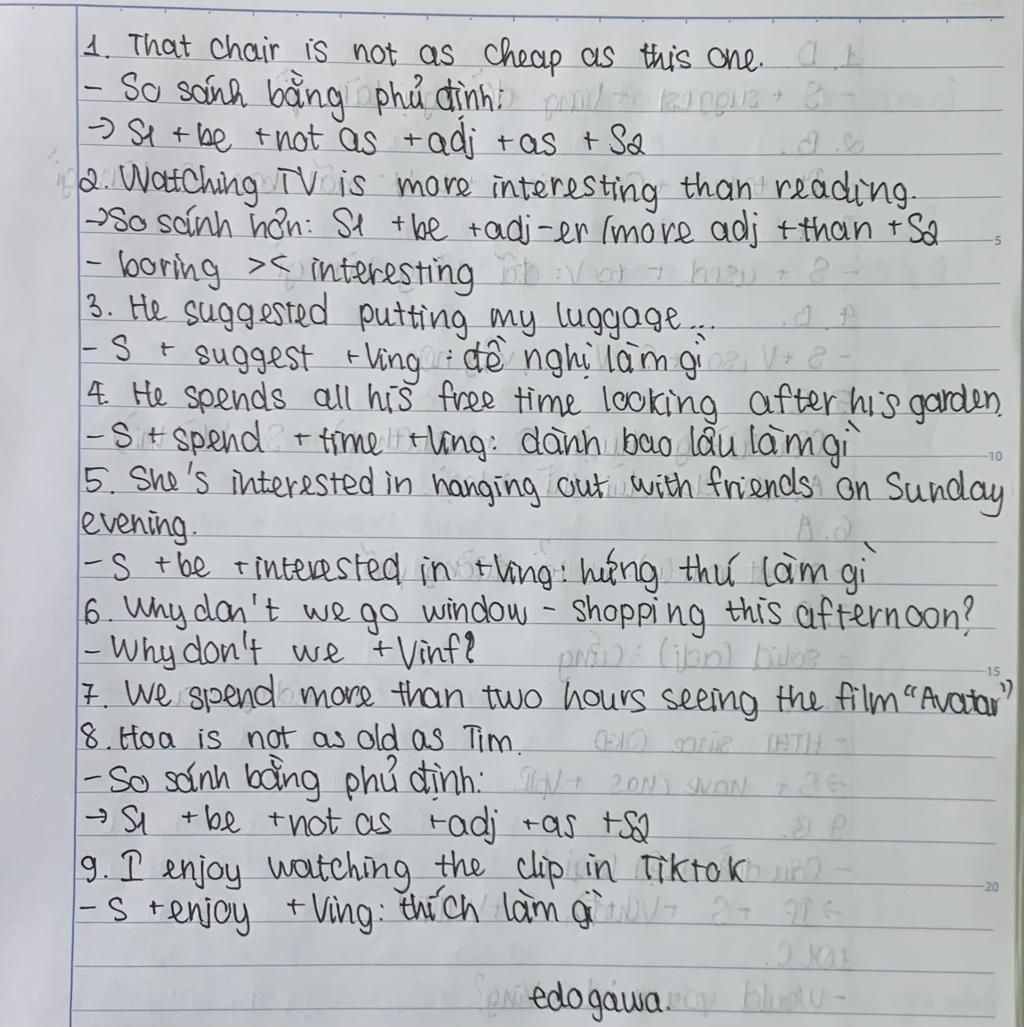 1. That chair is not as cheap as this one.
- So sánh bằng phủ định:
→ S1 + be + not as + adj + as + S2
2. Watching TV is more interesting than reading.
→ So sánh hơn: S1 + be + adj-er / more adj + than + S2
- boring >< interesting
3. He suggested putting my luggage...
- S + suggest + Ving : đề nghị làm gì
4. He spends all his free time looking after his garden.
- S + spend + time + Ving: dành bao lâu làm gì
5. She's interested in hanging out with friends on Sunday
evening.
- S + be + interested in + Ving: hứng thú làm gì
6. Why don't we go window - shopping this afternoon?
- Why don't we + Vinf?
7. We spend more than two hours seeing the film "Avatar"
8. Hoa is not as old as Tim.
- So sánh bằng phủ định:
→ S1 + be + not as + adj + as + S2
9. I enjoy watching the clip in Tiktok
- S + enjoy + Ving: thích làm gì
edogawa.
5
10
15
20